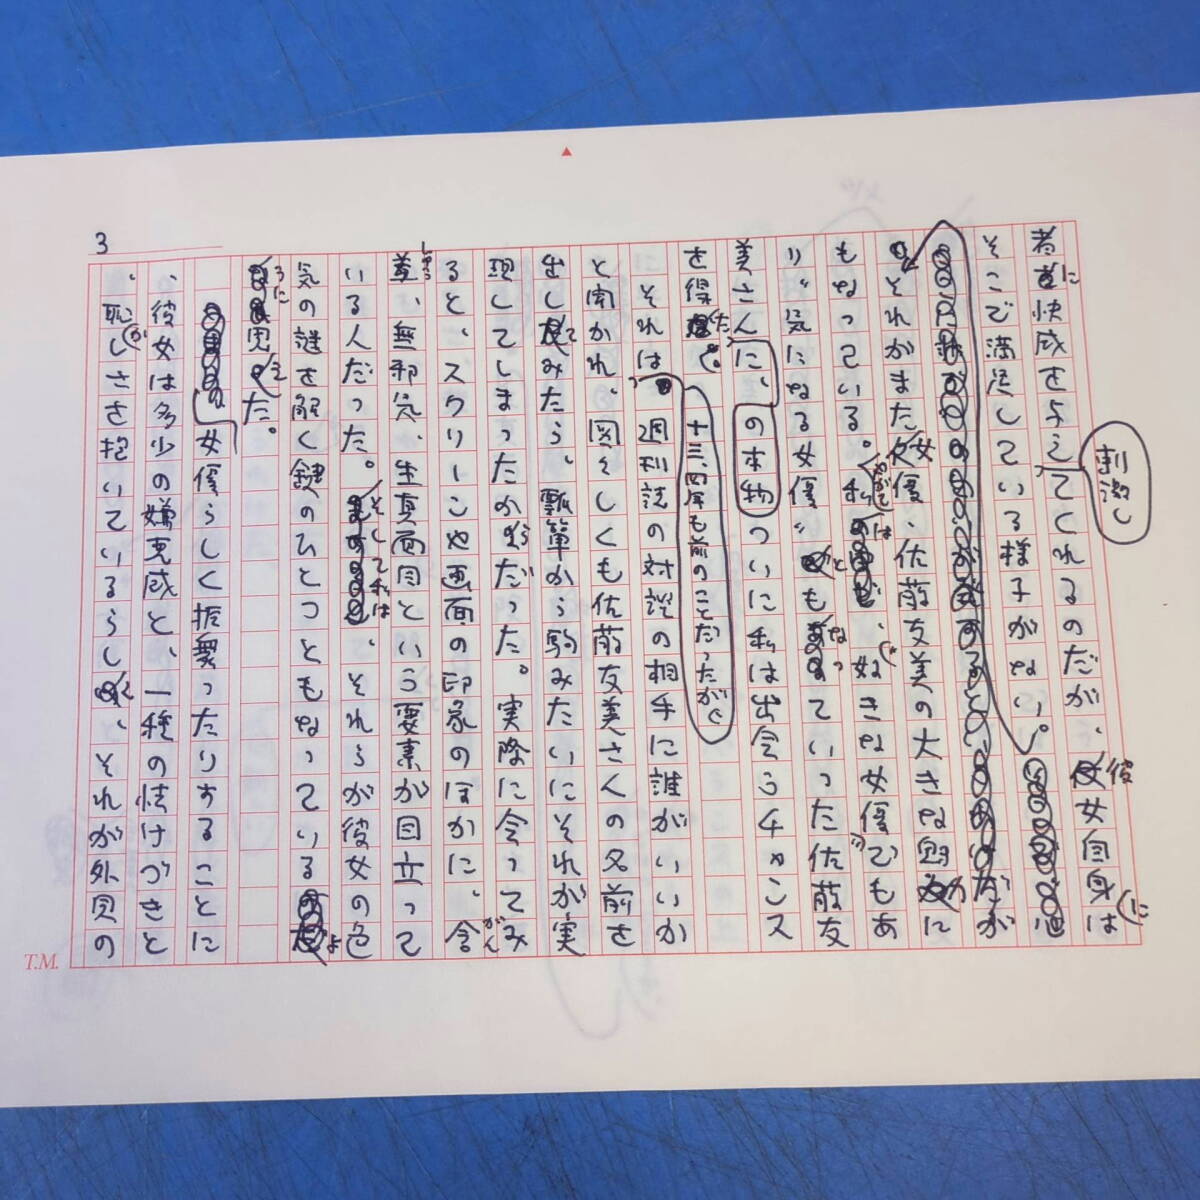 3
者に快感を与えてくれるのだが、彼女自身は
に
刺激し
そこで満足している様子がない。
が
それがまた女優、佐藤友美の大きな魅力に
もなっている。私は、好きな女優でもあ
り〝気になる女優〟ともなっていった佐藤友
美さんに、の本物ついに私は出会うチャンス
を得た。
十三、四年も前のことだったが
それは週刊誌の対談の相手に誰がいいか
と聞かれ、図々しくも佐藤友美さんの名前を
出してみたら、瓢箪から駒みたいにそれが実
現してしまったからだった。実際に会ってみ
ると、スクリーンや画面の印象のほかに、含
がん
羞、無邪気、生真面目という要素が目立って
しゅう
いる人だった。そして私は、それらが彼女の色
気の謎を解く鍵のひとつともなっているよ
うに思えた。
女優らしく振舞ったりすることに
、彼女は多少の嫌悪感と、一種の怯けづきと
、恥しささえ抱いているらしく、それが外見の
T.M.